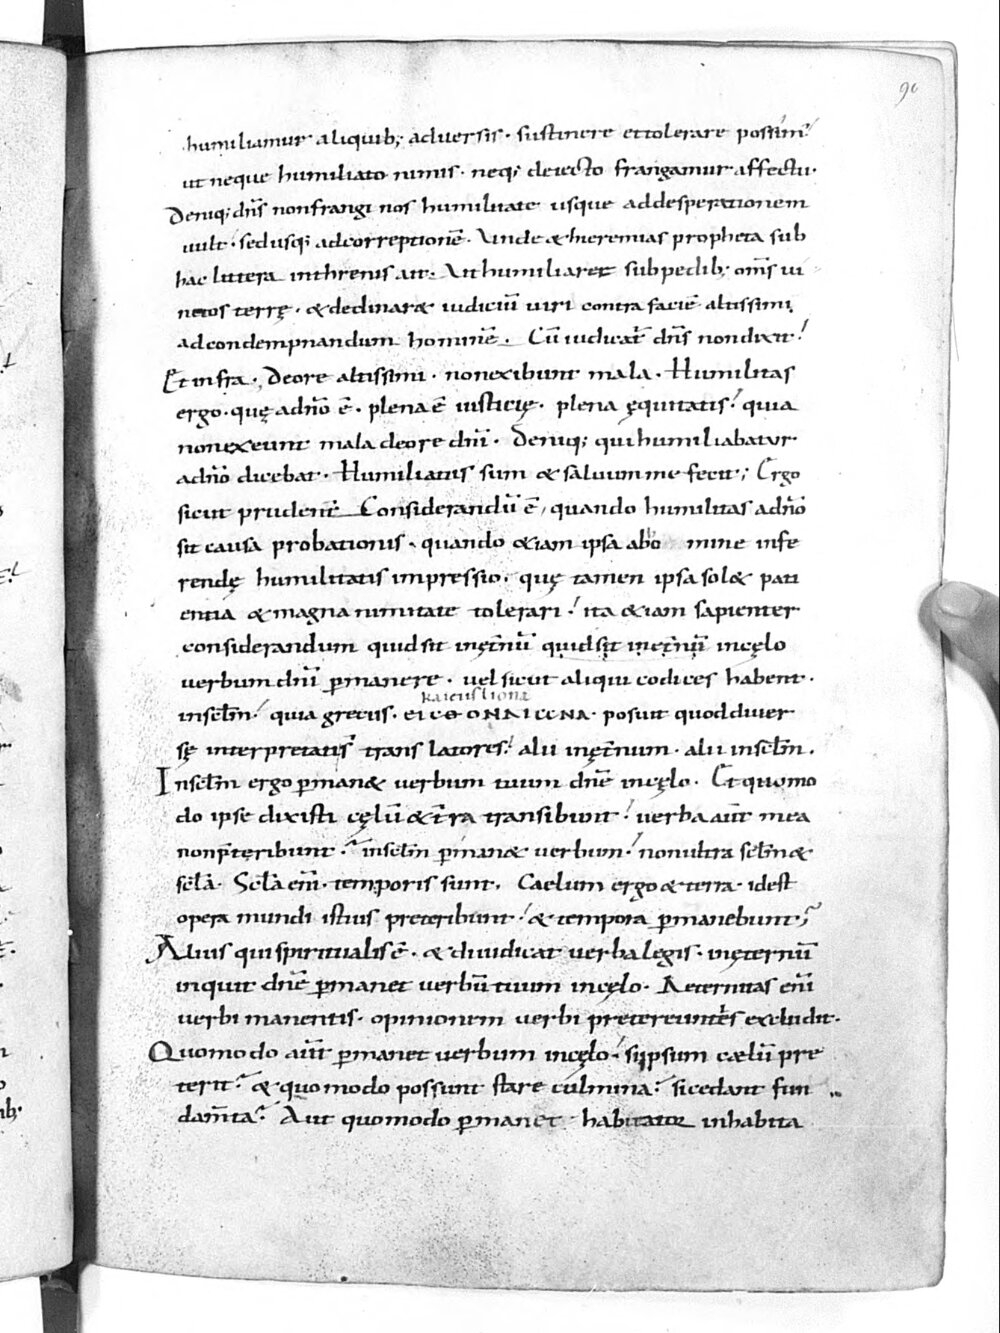 90
humiliamur aliquib; adversis · sustinere et tolerare possim̄
ut neque humiliato nimis · neq; deiecto frangamur affectu ·
Deniq; dn̄s non frangi nos humilitate usque ad desperationem
uult · sed usq; ad correptionē · Unde & hieremias propheta sub
hac littera in threnis ait · Ut humiliaret sub pedib; om̄s ui
nctos terrę · & declinar& iudiciū uiri contra faciē altissimi,
ad condempnandum hominē · Cū iudicar& dn̄s non dixit
Et infra · De ore altissimi · non exibunt mala · Humilitas
ergo · quę ad dn̄o ē · plena ē iusticię · plena ęquitatis · quia
non exeunt mala de ore dn̄i · Deniq; qui humiliabatur
a dn̄o dicebat · Humiliatus sum & saluum me fecit; Ergo
sicut prudent̄ Considerandū ē, quando humilitas a dn̄o
sit causa probationis · quando &iam ipsa ab ho mine infe
rendę humilitatis impressio · quę tamen ipsa sol& pati
entia & magnanimitate tolerari · ita &iam sapienter
considerandum quid sit inęt̄nū quid sit inęt̄nū in cęlo
uerbum dn̄i p̄manere · uel sicut aliqui codices habent ·
in scl̄m · quia grecus · ЄIC ΘONAICΩNA · posuit quod diuer
sę interpretatis̄ translatores · alii inęt̄num · alii in scl̄m.
In scl̄m ergo p̄man& uerbum tuum dn̄e in cęlo · Et quomo
do ipse dixisti cęlū & t̄ra transibunt · uerba aut̄ mea
non p̄teribunt · in scl̄m p̄man& uerbum · non ultra scl̄m &
scl̄a · Scl̄a eni̅ · temporis sunt. Caelum ergo & terra · idest
opera mundi istius preteribunt · & tempora p̄manebunt;
Alius qui spiritualis ē · & diiudicat uerba legis · inęternū
inquit dn̄e p̄manet uerbū tuum in cęlo · Aeternitas eni̅
uerbi manentis · opinionem uerbi pretereuntis excludit ·
Quomodo aut̄ p̄manet uerbum in cęlo · si ipsum cælū pre
terit · & quomodo possunt stare culmina · si cedant fun
dam̄ta · Aut quomodo p̄manet habitator inhabita